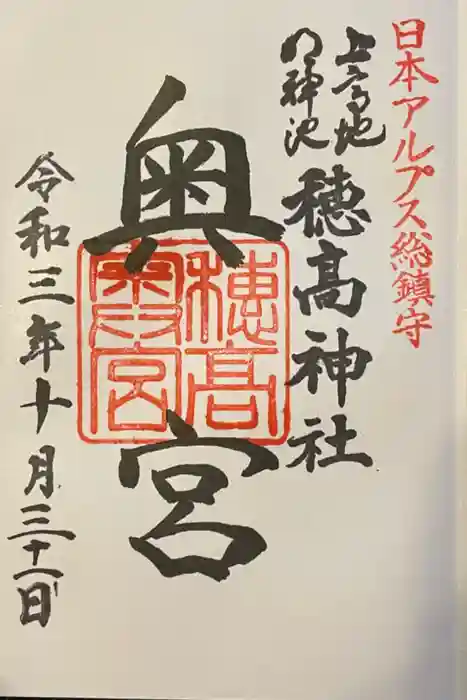 日本アルプス総鎮守
上高地
明神池
穂高神社
奥宮
穂高
奥宮
令和三年十月三十一日